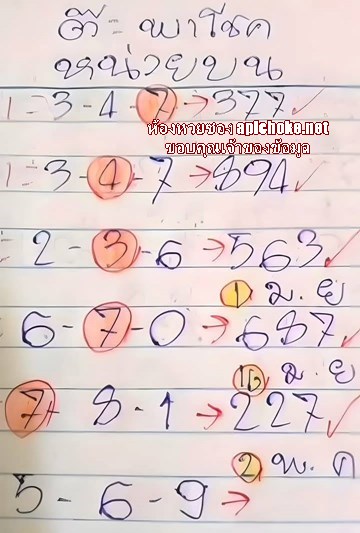 ต๊ะ พาโชค
หน่วยบน
1 = 3 - 4 - 7 → 377 ✓
ห้องหวยซอง apichoke.net
ขอบคุณเจ้าของข้อมูล
1 = 3 - 4 - 7 → 894 ✓
= 2 - 3 - 6 → 563 ✓
1 ม.ย
6 - 7 - 0 → 687 ✓
16 ม.ย
7 - 8 - 1 → 227 ✓
2 พ.ค
5 - 6 - 9 →